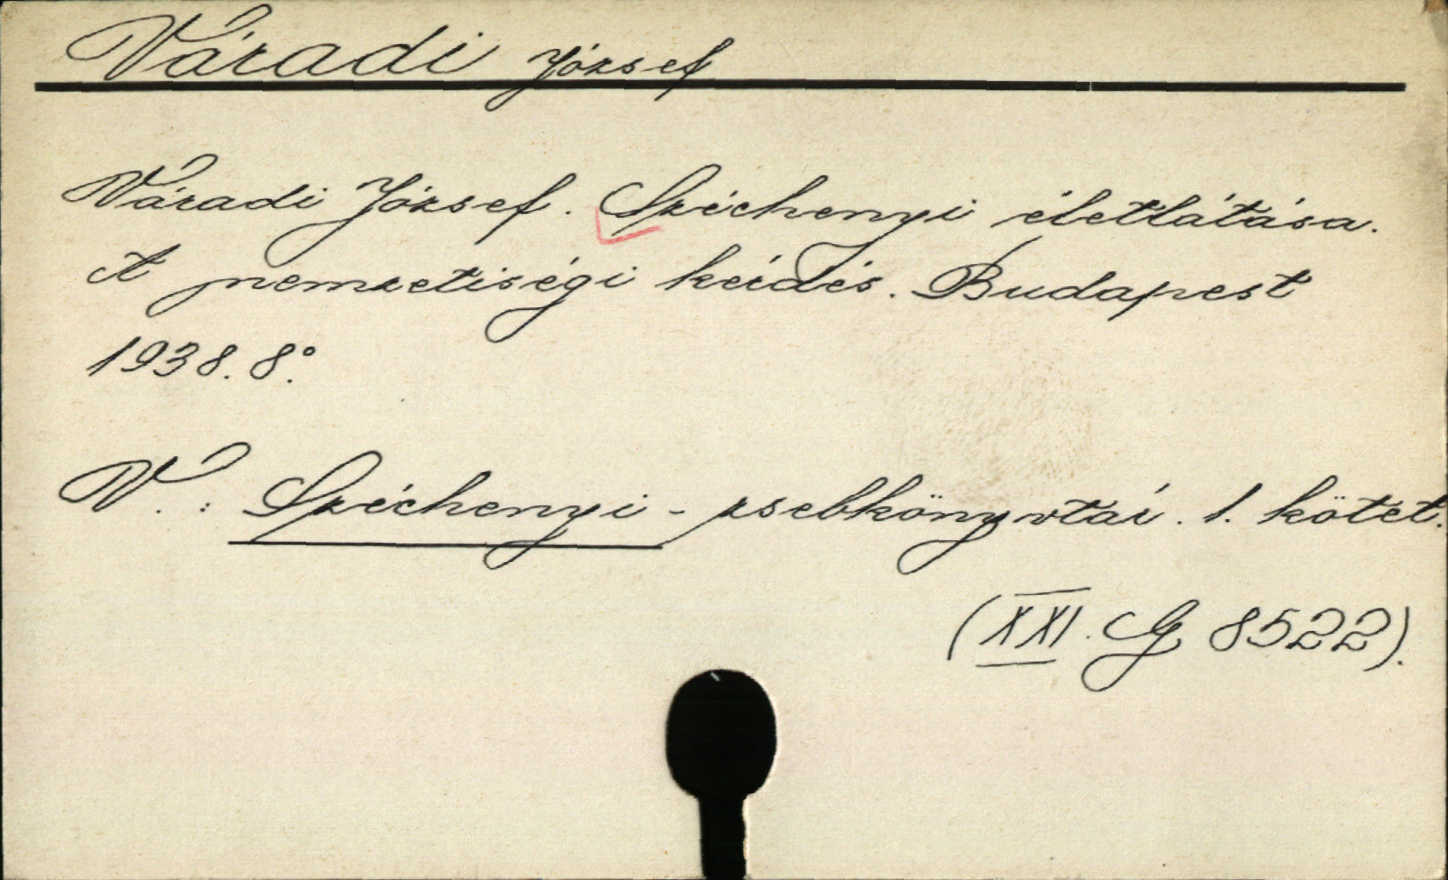 Váradi József
Váradi József. Széchenyi életlátása.
A nemzetiségi kérdés. Budapest
1938. 8°.
V.: Széchenyi-zsebkönyvtár. 1. kötet.
(XXI. G 8522).